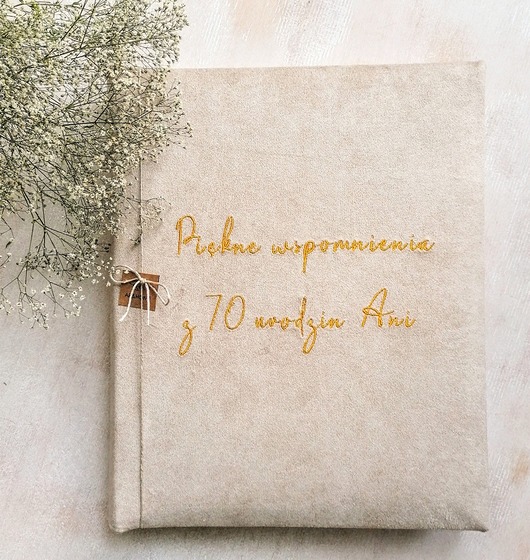 Piękne wspomnienia
z 70 urodzin Ani